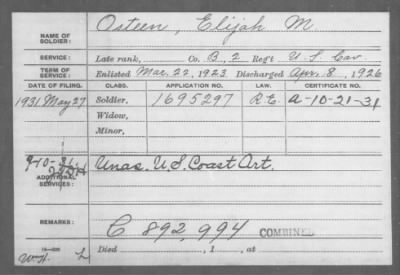 NAME OF SOLDIER: Osteen, Elijah M.
SERVICE: Late rank, Co. B, 2 Reg't U.S. Cav.
TERM OF SERVICE: Enlisted Mar. 22, 1923 Discharged Apr. 8, 1926
DATE OF FILING. CLASS. APPLICATION NO. LAW. CERTIFICATE NO.
1931 May 27 Soldier, 1695297 R.E. a-10-21-31
Widow,
Minor,
9-10-31
ADDITIONAL SERVICES: Unas. U.S. Coast Art.
REMARKS: C 892,994 COMBINED
Died , 1 , at